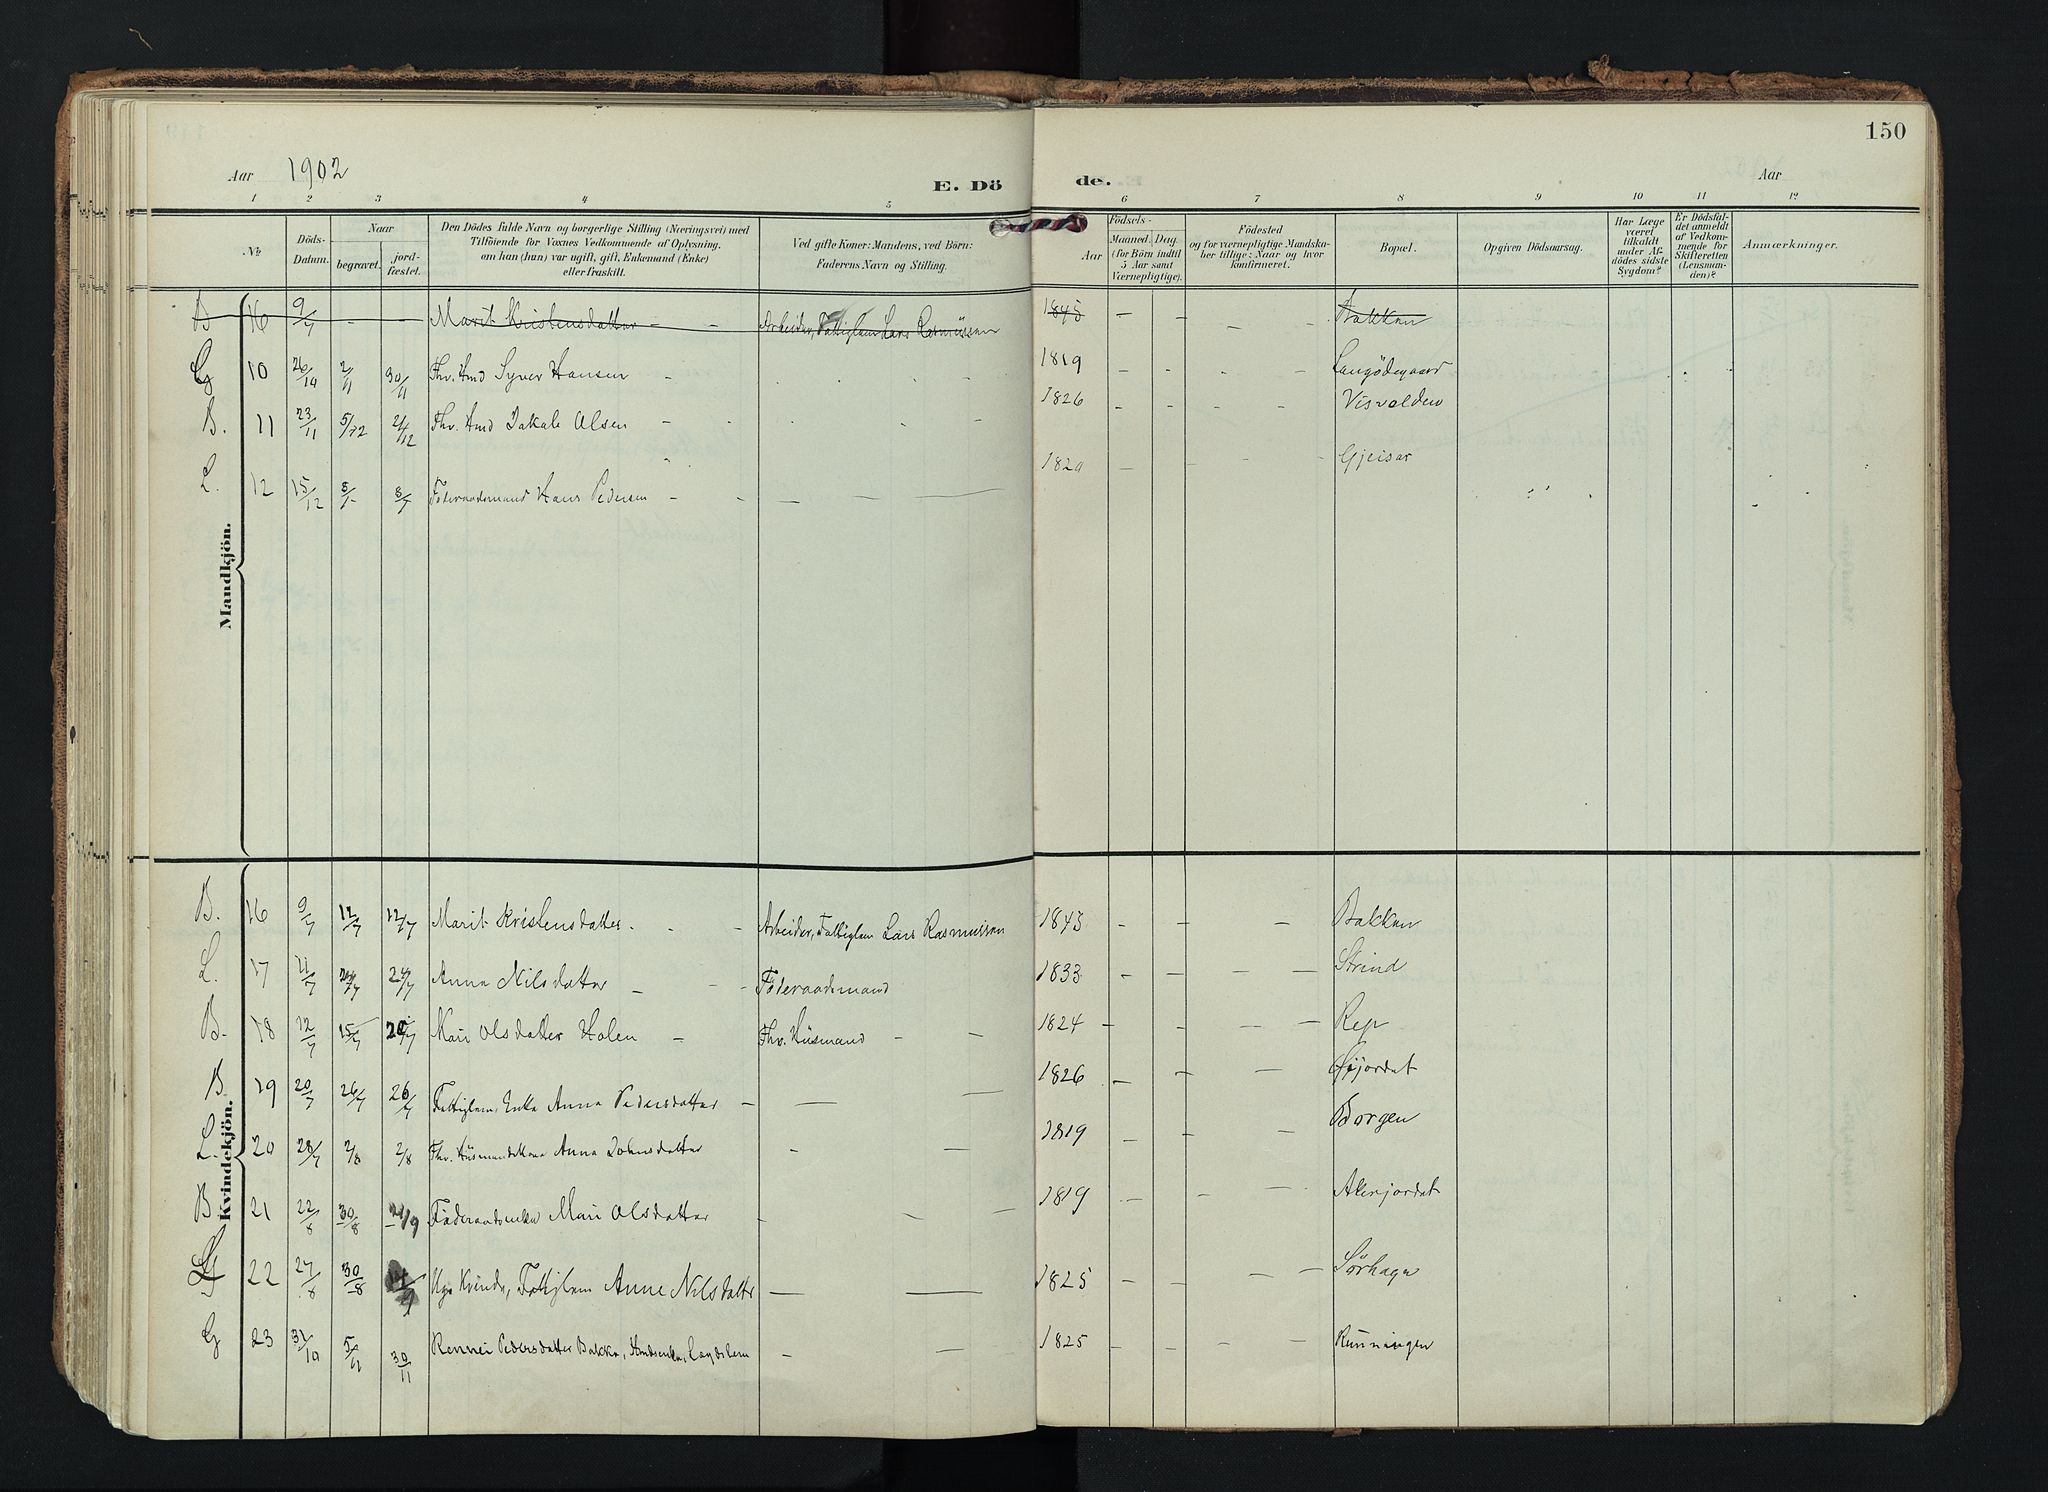 150
Aar 1902 E. Dö de. Aar
1 2 3 4 5 6 7 8 9 10 11 12
№ Döds-Datum. Naar begravet. jord-fæstet. Den Dödes fulde Navn og borgerlige Stilling (Næringsvei) med Tilföiende for Voxnes Vedkommende af Oplysning, om han (hun) var ugift, gift, Enkemand (Enke) eller fraskilt. Ved gifte Koner: Mandens, ved Börn: Faderens Navn og Stilling. Födsels- Aar Maaned. Dag. (for Börn indtil 5 Aar samt Værnepligtige). Födested og for værnepligtige Mandskaber tillige: Naar og hvor konfirmeret. Bopæl. Opgiven Dödsaarsag. Har Læge været tilkaldt under Afdödes sidste Sygdom? Er Dödsfaldet anmeldt af Vedkommende for Skifteretten (Lensmanden)? Anmærkninger.
Mandkjön.
B 16 9/7 - - Marit Kristensdatter - - Arbeider, Fattiglem Lars Rasmüssen 1845 - - - Bakken
G 10 26/10 2/11 30/11 Fhv. Hmd Syver Hansen - 1819 - - - - Langödegaard
B. 11 23/11 5/12 21/12 Fhv. Hmd Jakob Olsen - 1826 - - - - Visvolden
L. 12 15/12 3/1 3/1 Föderaadsmand Hans Pedersen - - - 1820 - - - Gjeisar
Kvindekjön.
B. 16 9/7 12/7 12/7 Marit Kristensdatter - - Arbeider, Fattiglem Lars Rasmussen 1845 - - - Bakken
L. 17 11/7 24/7 24/7 Anne Nilsdatter - - Föderaadsmand 1833 - - - - Strind
B. 18 12/7 15/7 20/7 Mari Olsdatter Holen - Fhv. Hüsmand - - 1824 - - - - Rep
B 19 20/7 26/7 26/7 Fattiglem, Enke Anne Pedersdatter - - - 1826 - - - Øijordet
L. 20 28/7 2/8 2/8 Fhv. Hüsmandskone Anne Johnsdatter - - 1819 - - - Borgen
B 21 22/8 30/8 21/9 Föderaadsenke Mari Olsdatter - - - 1819 - - - Akerjordet
G 22 27/8 30/8 14/9 Ugv Kvinde, Fattiglem Anne Nilsdatter - - 1825 - - - - Sørhage
G 23 31/10 5/11 30/11 Rennei Pedersdatter Bakke, Hmdsenke, Lægdslem - - - 1825 - - - - Rünningen